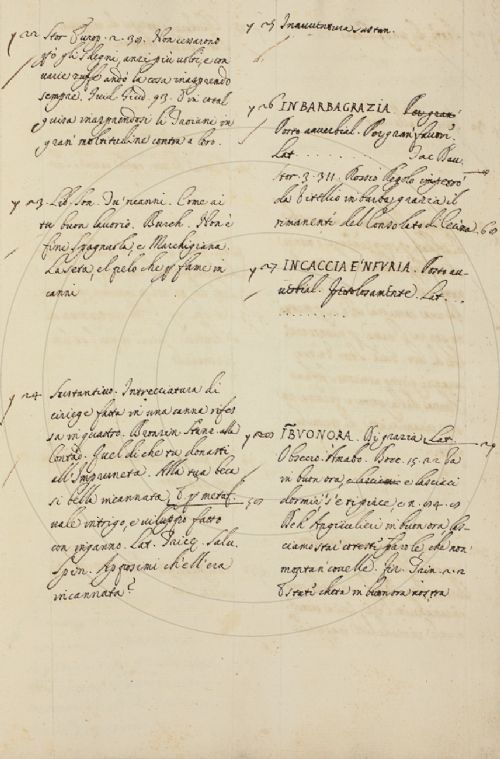 y 22 Stor. Europ. 2. 39. Non cessarono
gli sdegni, anzi più volte, e con
varie zuffe andò la cosa inasprendo
sempre. Guid. Giud. 93. E in cotal
guisa inasprendosi li Troiani in
gran moltitudine contra a loro.
y 23. Lib. Son. In incanni. Come ai
tu buon lavorio. Burch. Non è
fine spagnuola, e Marchigiana.
La seta, el pelo che si fanne in
canni
y 24 Sustantivo. Intrecciatura di
ciriege fatta in una canna rifes
sa in quattro. Buonin
Quel di che tu donasti
all'Impruneta. Alla tua beca
si bella incannata, E metaf.
vale intrigo, e viluppo fatto
con inganno. Lat. Salv.
Spin. Apposimi ch'ell'era
incannata?
y 25 Inavventura sustan.
y 26 IN BARBAGRAZIA. Per gran
Posto avverbial. Per gran favore.
Lat. . . . . . . Tac Dav.
stor. 3. 311. Rosio Regolo impetrò
da Vitellio in barba grazia il
rimanente del Consolato di Cecina. 60
y 27 IN CACCIA E'N FURIA. Posto av-
verbial. Frettolosamente. Lat. . .
. . . . . . . .
y 28 IN BUONORA. Di grazia, Lat. 29
Obsecro. Amabo. Bocc. 15. 22 Va
in buon ora, e lasciaci
dormir s'e ti piace, e n. 64. 9
Deh Angiulieri in buon ora las-
ciamo stai coteste parole, che non
montan covelle.
E statti chera in buon ora nostra